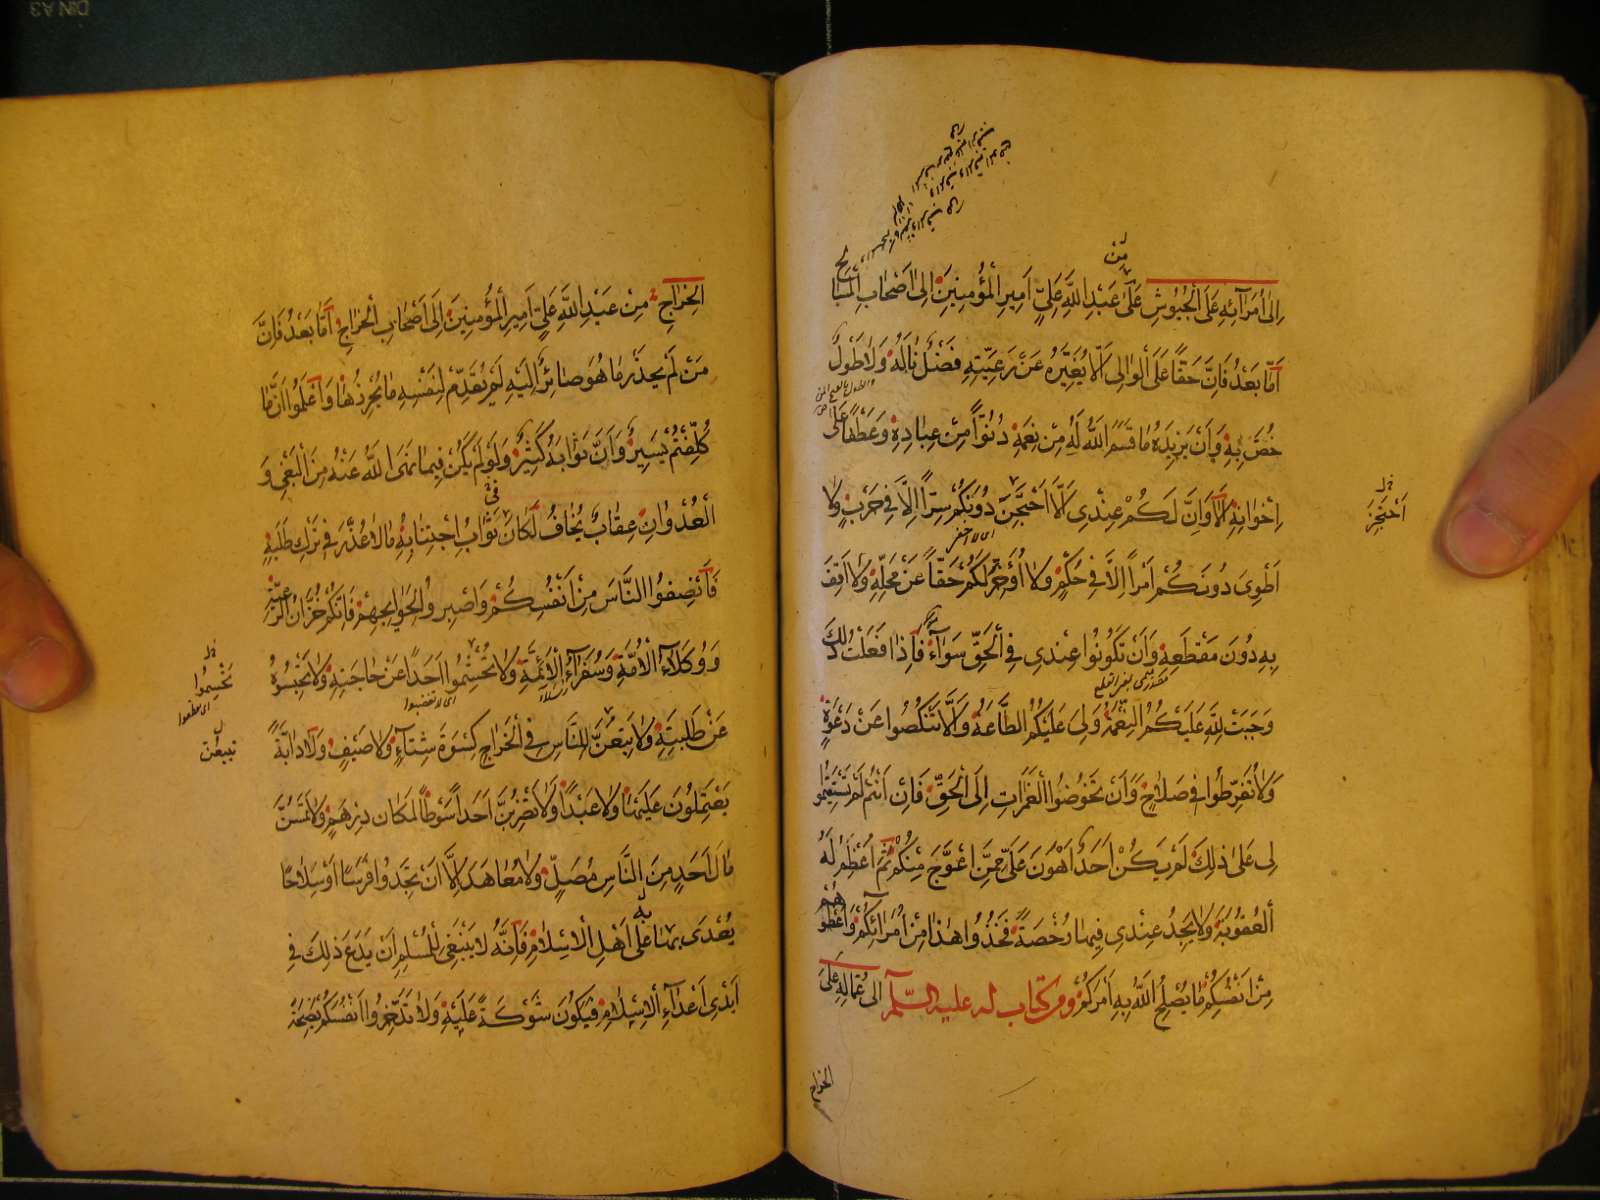 إِلى أُمَرَآئِهِ عَلَى الْجُيُوشِ مِنْ عَبْدِ اللَّهِ عَلِيٍّ أَمِيرِ الْمُؤْمِنِينَ إِلى أَصْحَابِ الْمَسَالِحِ
أَمَّا بَعْدُ فَإِنَّ حَقّاً عَلَى الْوالِى أَلَّا يُغَيِّرَهُ عَنْ رَعِيَّتِهِ فَضْلٌ نَالَهُ وَلَا طَوْلٌ
خُصَّ بِهِ وَأَنْ يَزِيدَهُ مَا قَسَمَ اللَّهُ لَهُ مِنْ نِعَمِهِ دُنُوّاً مِنْ عِبَادِهِ وَعَطْفاً عَلَى
إِخْوَانِهِ أَلَا وَإِنَّ لَكُمْ عِنْدِى أَلَّا أَحْتَجِنَ دُونَكُمْ سِرّاً إِلَّا فِى حَرْبٍ وَلَا
أَحْتَجِزَ
أَطْوِىَ دُونَكُمْ أَمْراً إِلَّا فِى حُكْمٍ وَلَا أُؤَخِّرَ لَكُمْ حَقّاً عَنْ مَحَلِّهِ وَلَا أَقِفَ
بِهِ دُونَ مَقْطَعِهِ وَأَنْ تَكُونُوا عِنْدِى فِى الْحَقِّ سَوَآءً فَإِذَا فَعَلْتُ ذَلِكَ
وَجَبَتْ لِلَّهِ عَلَيْكُمُ النِّعْمَةُ وَلِىَ عَلَيْكُمُ الطَّاعَةُ وَأَلَّا تَنْكُصُوا عَنْ دَعْوَةٍ
وَلَا تُفَرِّطُوا فِى صَلَاحٍ وَأَنْ تَخُوضُوا الْغَمَرَاتِ إِلَى الْحَقِّ فَإِنْ أَنْتُمْ لَمْ تَسْتَقِيمُوا
لِى عَلَى ذلِكَ لَمْ يَكُنْ أَحَدٌ أَهْوَنَ عَلَىَّ مِمَّنِ اعْوَجَّ مِنْكُمْ ثُمَّ أُعْظِمُ لَهُ
الْعُقُوبَةَ وَلَا يَجِدُ عِنْدِى فِيهَا رُخْصَةً فَخُذُوا هذَا مِنْ أُمَرَائِكُمْ وَأَعْطُوهُمْ
مِنْ أَنْفُسِكُمْ مَا يُصْلِحُ اللَّهُ بِهِ أَمْرَكُمْ ومن كتاب له عليه السلم إلى عُمَّالِهِ عَلَى
الخراج
الْخَرَاجِ مِنْ عَبْدِ اللَّهِ عَلِيٍّ أَمِيرِ الْمُؤْمِنِينَ إِلَى أَصْحَابِ الْخَرَاجِ أَمَّا بَعْدُ فَإِنَّ
مَنْ لَمْ يَحْذَرْ مَا هُوَ صَائِرٌ إِلَيْهِ لَمْ يُقَدِّمْ لِنَفْسِهِ مَا يُحْرِزُهَا وَاعْلَمُوا أَنَّ مَا
كُلِّفْتُمْ يَسِيرٌ وَأَنَّ ثَوَابَهُ كَثِيرٌ وَلَوْ لَمْ يَكُنْ فِيمَا نَهَى اللَّهُ عَنْهُ مِنَ الْبَغْىِ وَ
الْعُدْوَانِ عِقَابٌ يُخَافُ لَكَانَ فِى ثَوَابِ اجْتِنَابِهِ مَا لَا عُذْرَ فِى تَرْكِ طَلَبِهِ
فَأَنْصِفُوا النَّاسَ مِنْ أَنْفُسِكُمْ وَاصْبِرُوا لِحَوَائِجِهِمْ فَإِنَّكُمْ خُزَّانُ الرَّعِيَّةِ
وَوُكَلَاءُ الْأُمَّةِ وَسُفَرَاءُ الْأَئِمَّةِ وَلَا تُحْشِمُوا أَحَداً عَنْ حَاجَتِهِ وَلَا تَحْبِسُوهُ
تَحْسِمُوا
اى لا تغضبوا
عَنْ طَلِبَتِهِ وَلَا تَبِيعُنَّ لِلنَّاسِ فِى الْخَرَاجِ كِسْوَةَ شِتَاءٍ وَلَا صَيْفٍ وَلَا دَابَّةً
تبيعُنّ
يَعْتَمِلُونَ عَلَيْهَا وَلَا عَبْداً وَلَا تَضْرِبُنَّ أَحَداً سَوْطاً لِمَكَانِ دِرْهَمٍ وَلَا تَمَسُّنَّ
مَالَ أَحَدٍ مِنَ النَّاسِ مُصَلٍّ وَلَا مُعَاهَدٍ إِلَّا أَنْ تَجِدُوا فَرَساً أَوْ سِلَاحاً
يُعْدَى بِهِ عَلَى أَهْلِ الْإِسْلَامِ فَإِنَّهُ لَا يَنْبَغِى لِلْمُسْلِمِ أَنْ يَدَعَ ذَلِكَ فِى
أَيْدِى أَعْدَاءِ الْإِسْلَامِ فَيَكُونَ شَوْكَةً عَلَيْهِ وَلَا تَدَّخِرُوا أَنْفُسَكُمْ نَصِيحَةً